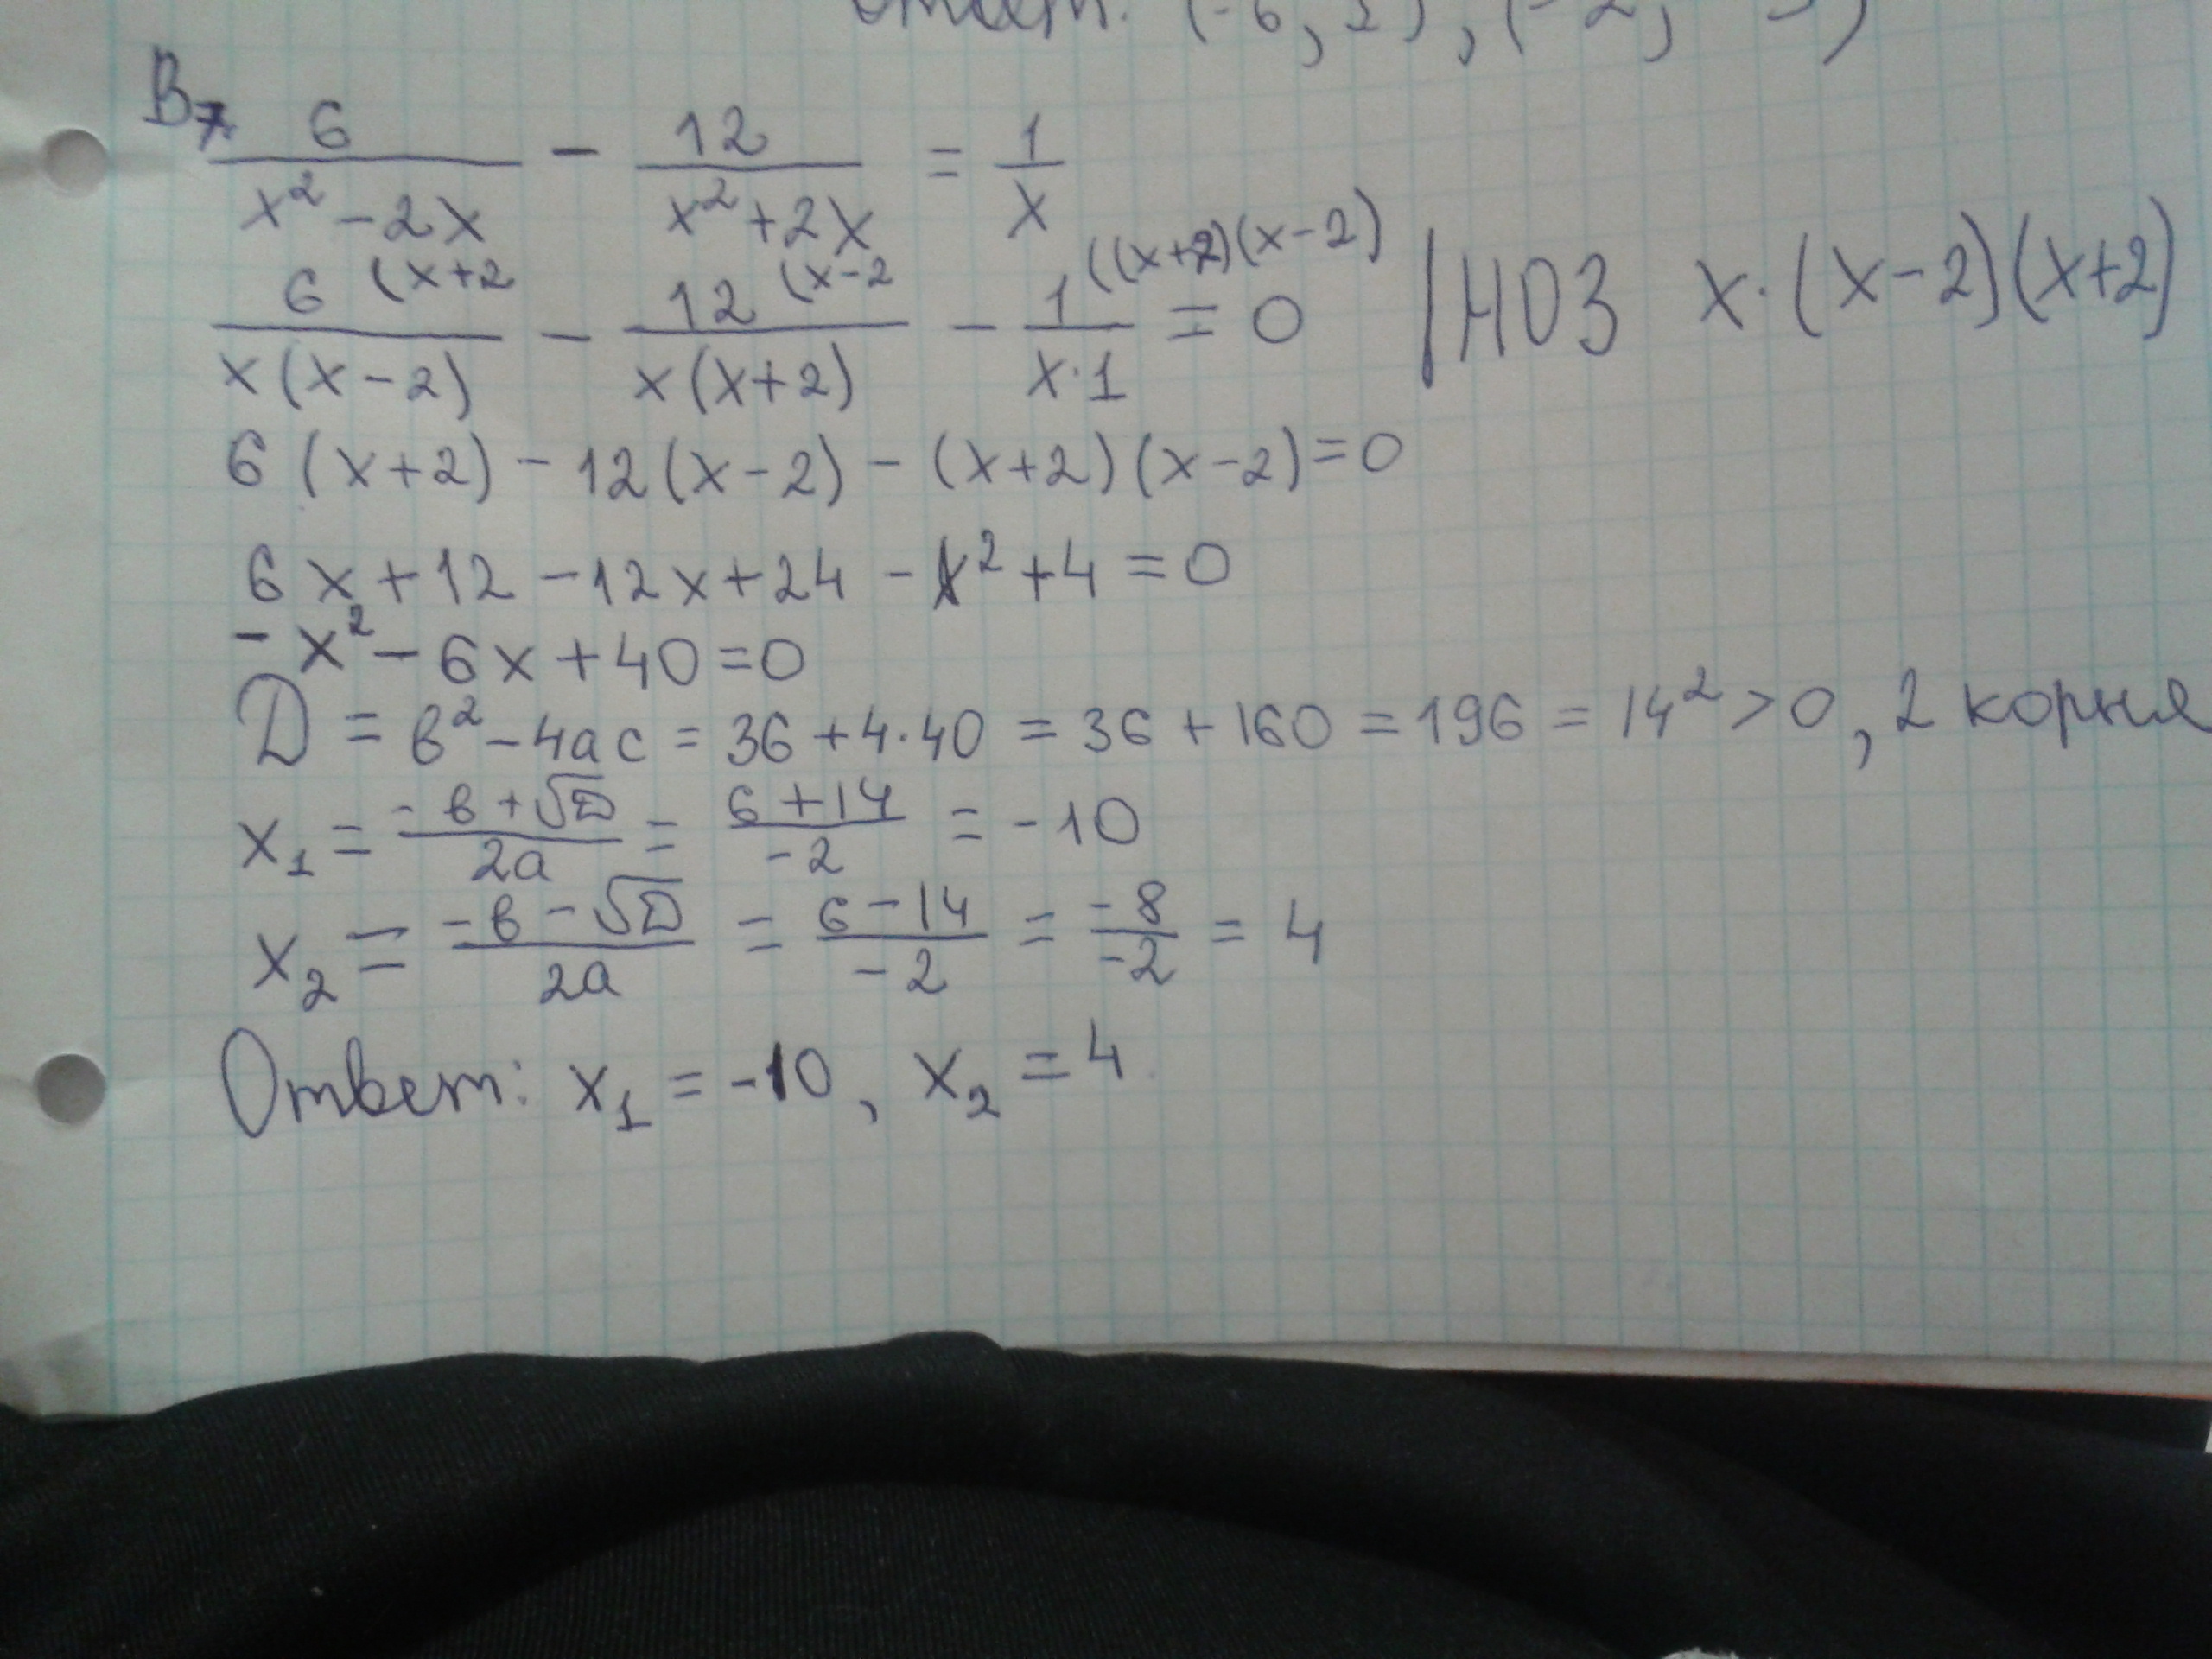 Ответ: (-6, 1), (-2,
В7 6/(x² - 2x) - 12/(x² + 2x) = 1/x
6 (x+2/(x(x-2)) - 12 (x-2/(x(x+2)) - 1 ((x+2)(x-2)/(x·1) = 0 | НОЗ x·(x-2)(x+2)
6(x+2) - 12(x-2) - (x+2)(x-2) = 0
6x + 12 - 12x + 24 - x² + 4 = 0
- x² - 6x + 40 = 0
D = b² - 4ac = 36 + 4·40 = 36 + 160 = 196 = 14² > 0, 2 корня
x₁ = (-b + √D)/(2a) = (6 + 14)/(-2) = -10
x₂ = (-b - √D)/(2a) = (6 - 14)/(-2) = (-8)/(-2) = 4
Ответ: x₁ = -10, x₂ = 4.